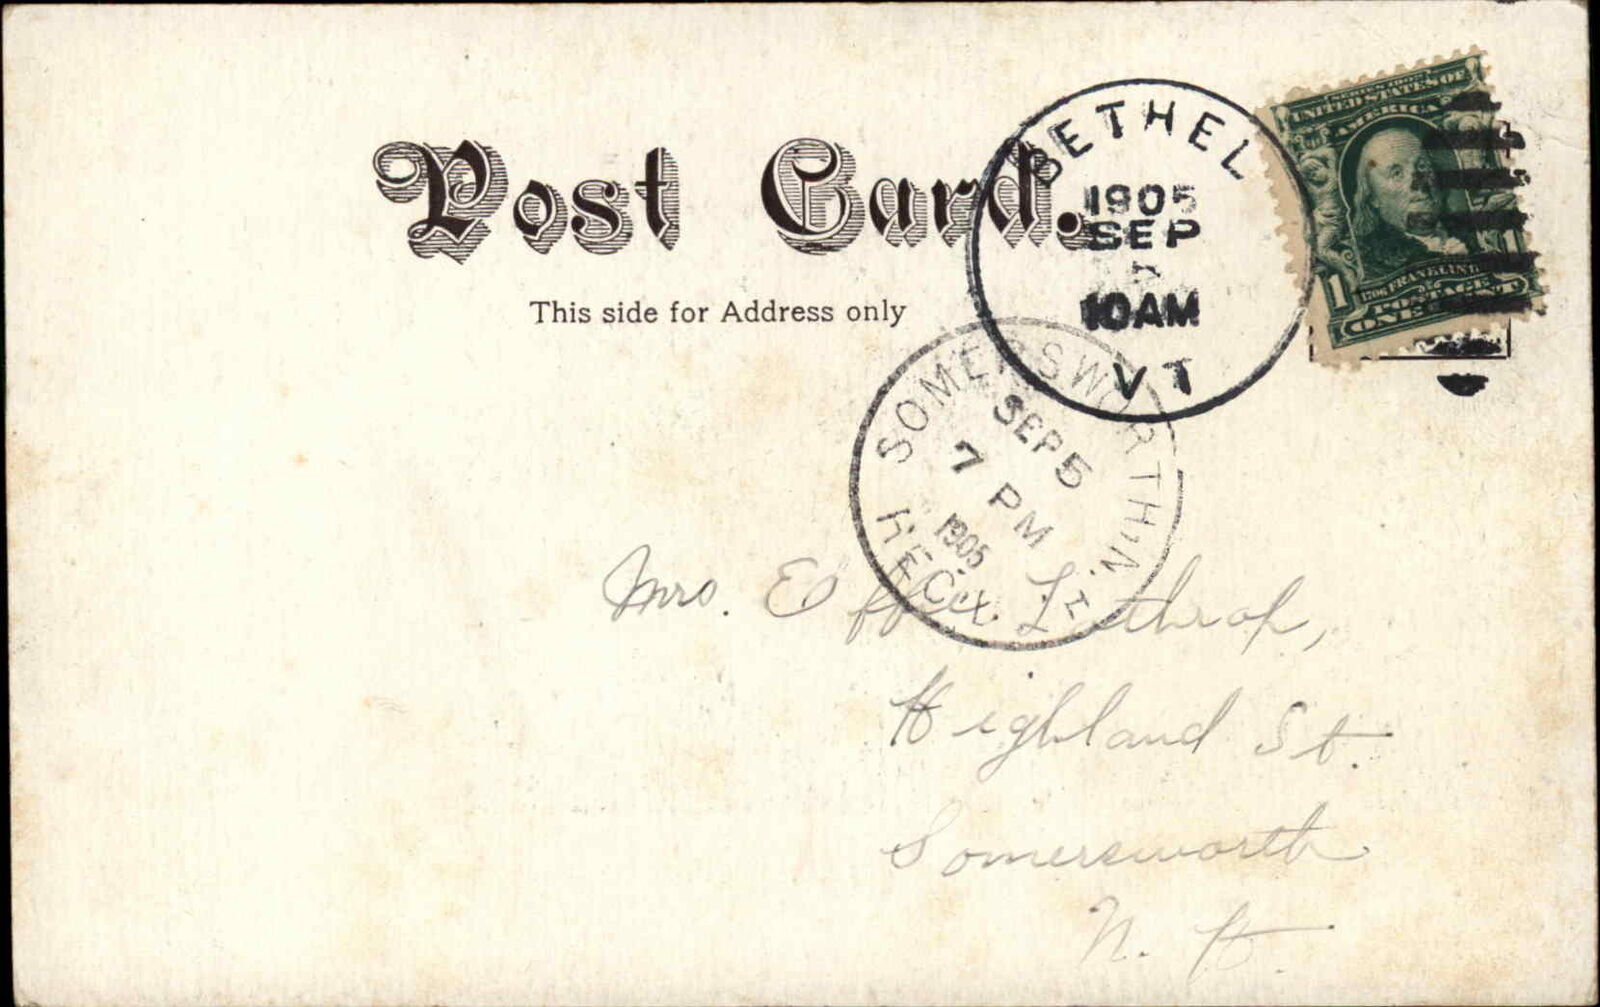 Post Card.
This side for Address only
BETHEL
1905
SEP
5
10AM
VT
SERIES 1902
UNITED STATES OF
AMERICA
1706 FRANKLIN 1790
POSTAGE
1 ONE CENT 1
SOMERSWORTH, N.H.
SEP 5
7 PM
1905
REC'D.
Mrs. Effie Lothrop,
Highland St.
Somersworth
N. H.